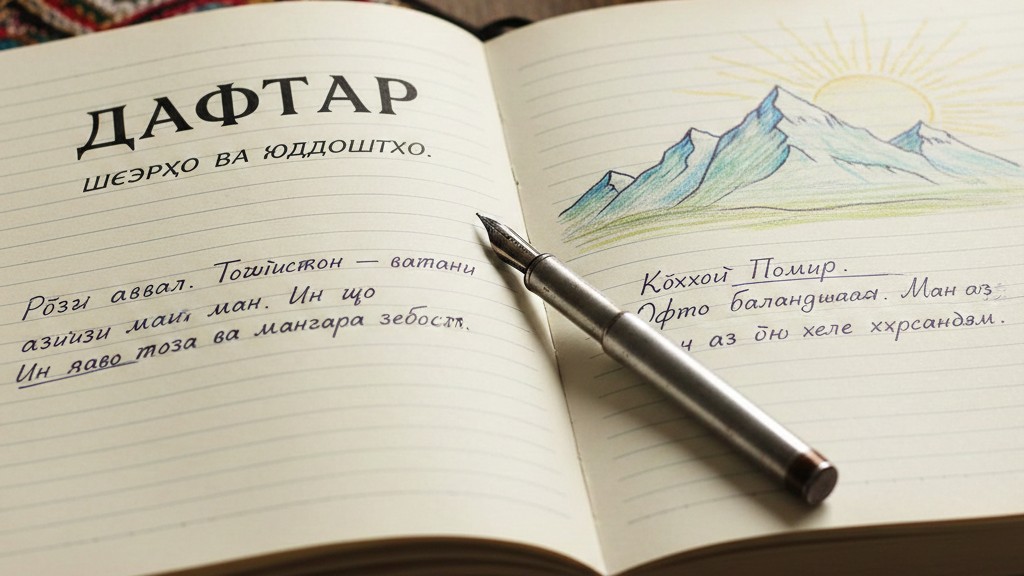 ДАФТАР
ШЕЭРҲО ВА ЮДДОШТХО.
Рӯзи аввал. Тоҷикистон — ватани
азизи ман. Ин що
Ин яаво тоза ва манзара зебост.
Кӯххой Помир.
Офто баландшааая. Ман аз
аз ӯю хеле ххрсандям.